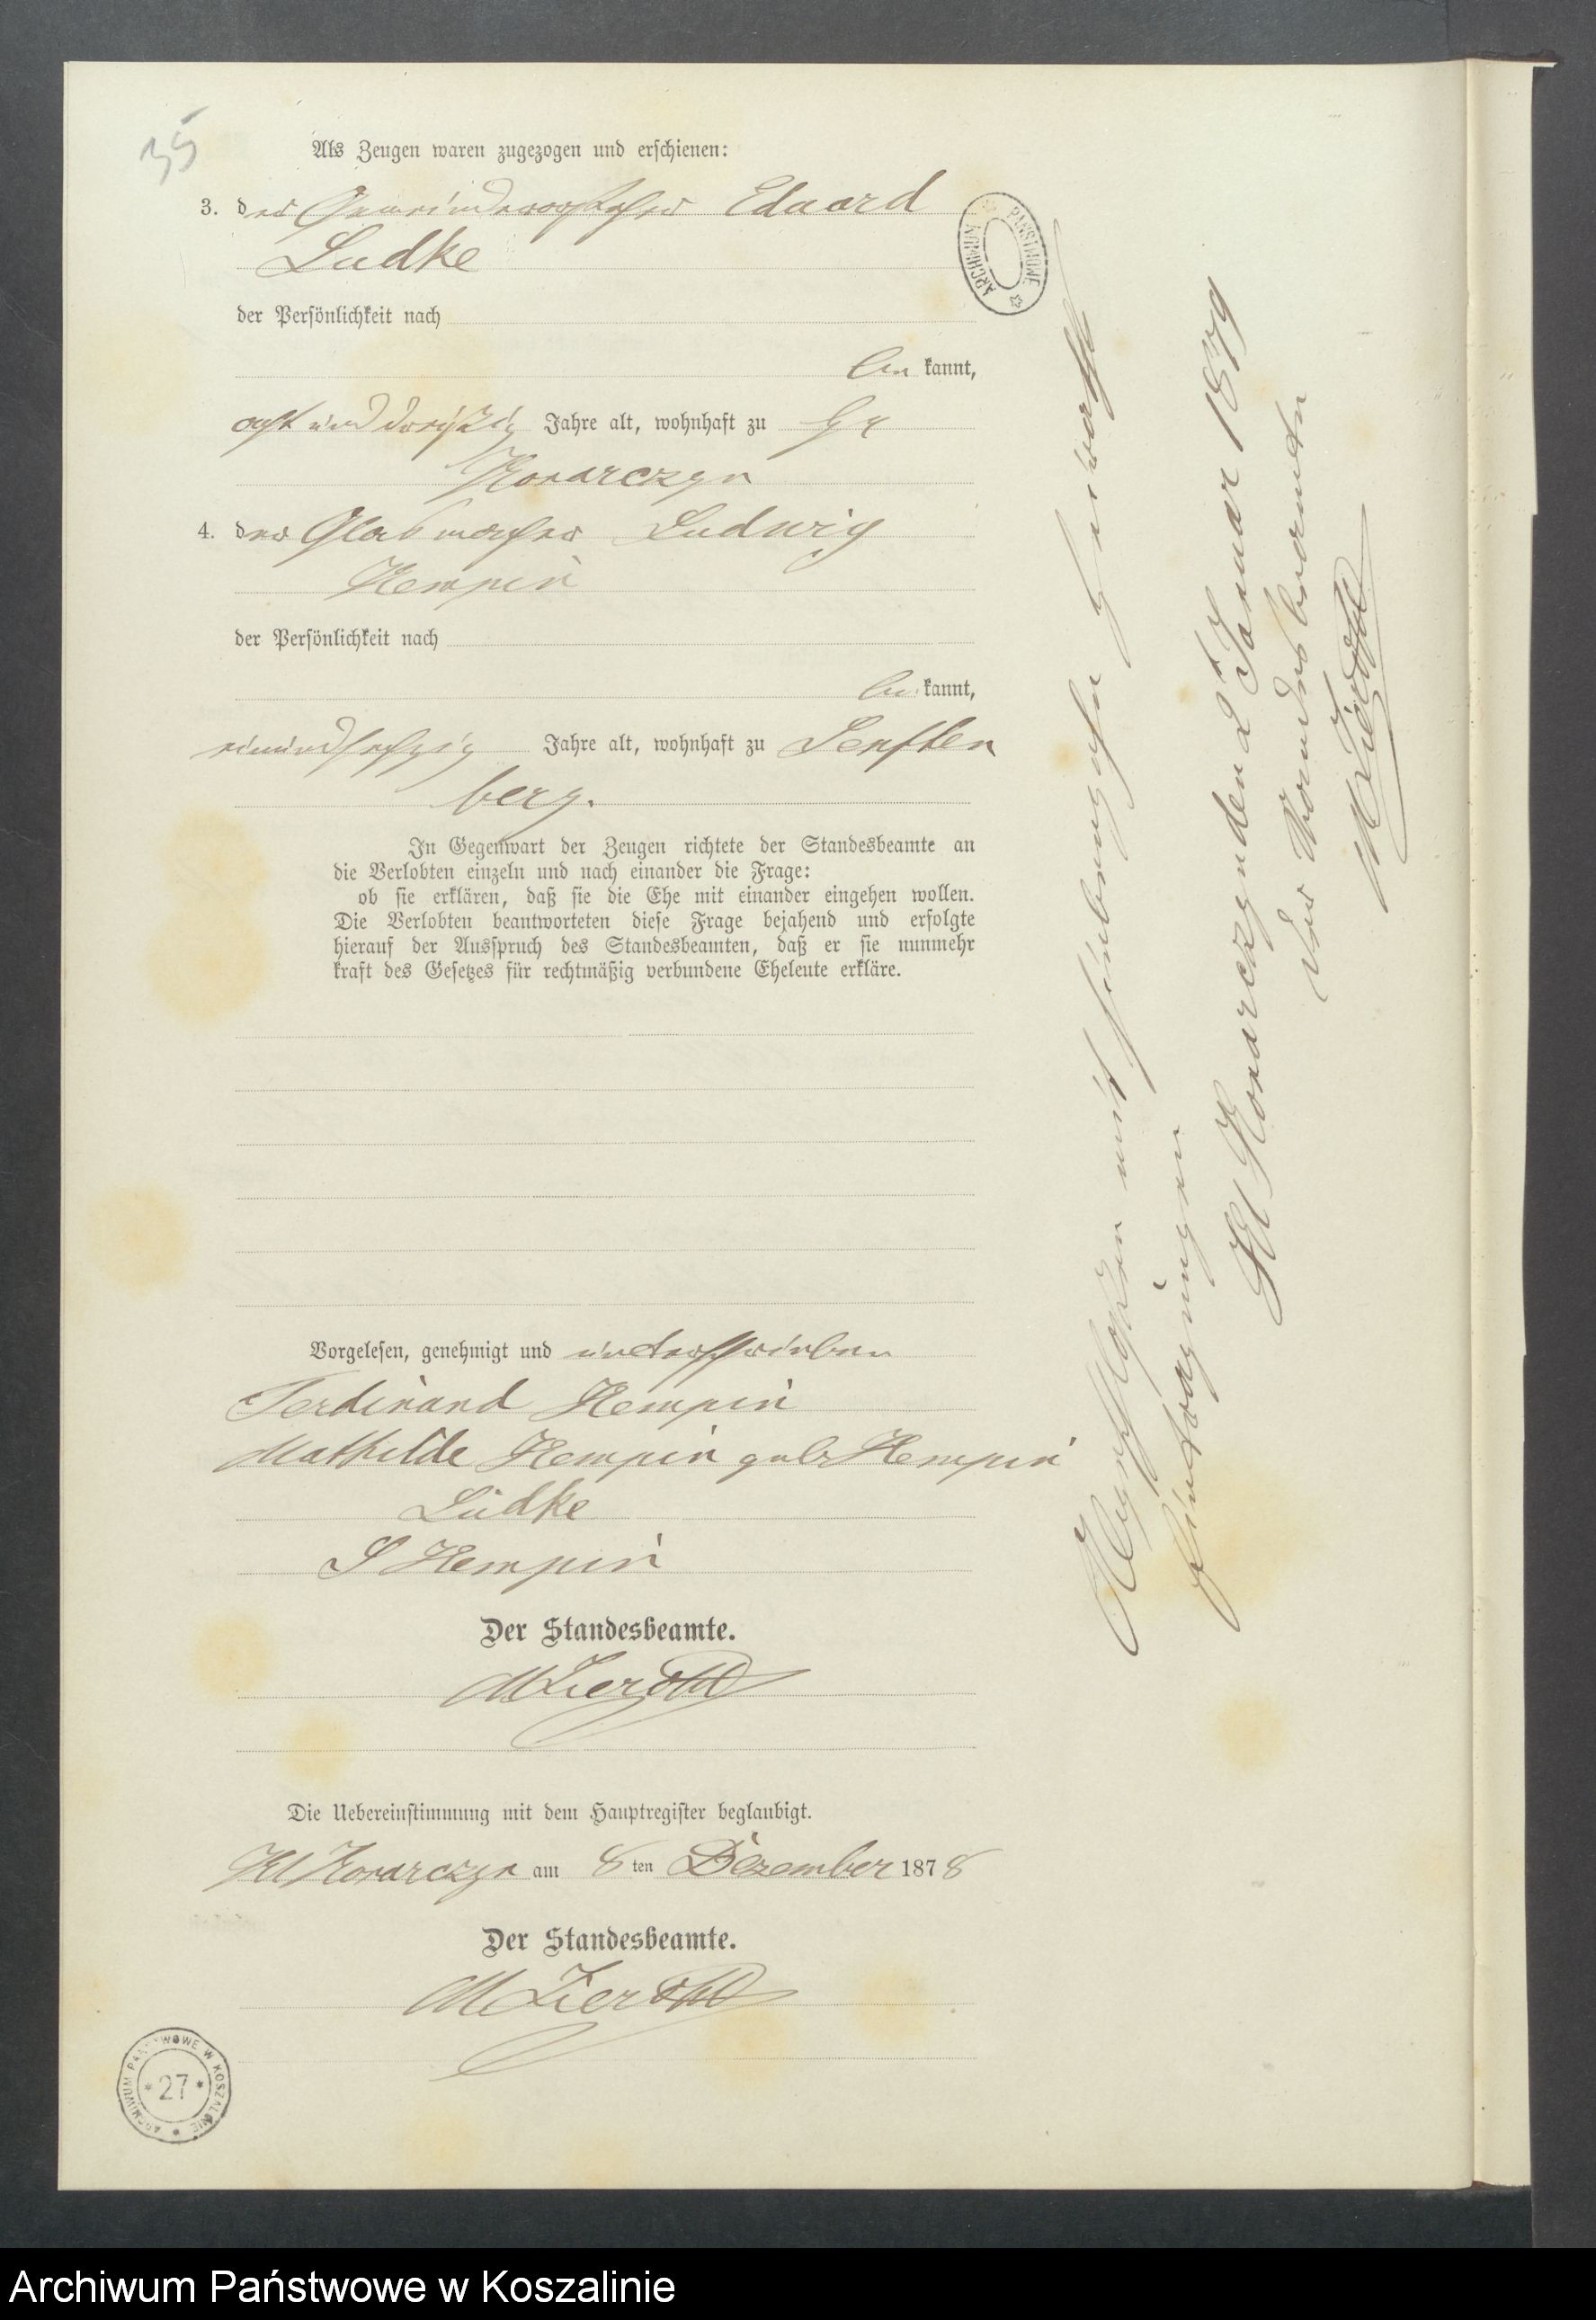 35
Als Zeugen waren zugezogen und erschienen:
3. der Gemeindevorsteher Eduard
Lüdke
der Persönlichkeit nach
be kannt,
acht und dreißig Jahre alt, wohnhaft zu Gr
Konarczyn
4. der Glasmacher Ludwig
Hempin
der Persönlichkeit nach
be kannt,
einundsechzig Jahre alt, wohnhaft zu Senften
berg.
In Gegenwart der Zeugen richtete der Standesbeamte an
die Verlobten einzeln und nach einander die Frage:
ob sie erklären, daß sie die Ehe mit einander eingehen wollen.
Die Verlobten beantworteten diese Frage bejahend und erfolgte
hierauf der Ausspruch des Standesbeamten, daß er sie nunmehr
kraft des Gesetzes für rechtmäßig verbundene Eheleute erkläre.
Vorgelesen, genehmigt und unterschrieben
Ferdinand Hempin
Mathilde Hempin geb Hempin
Lüdke
L Hempin
Der Standesbeamte.
M Zierold
Die Uebereinstimmung mit dem Hauptregister beglaubigt.
Kl Konarczyn am 8 ten Dezember 1878
Der Standesbeamte.
M Zierold
Abgeschlossen mit siebenzehn
Eintragungen
Kl Konarczyn den 2t Januar 1879
Der Standesbeamte
M Zierold
ARCHIWUM PAŃSTWOWE
ARCHIWUM PAŃSTWOWE W KOSZALINIE
* 27 *
Archiwum Państwowe w Koszalinie